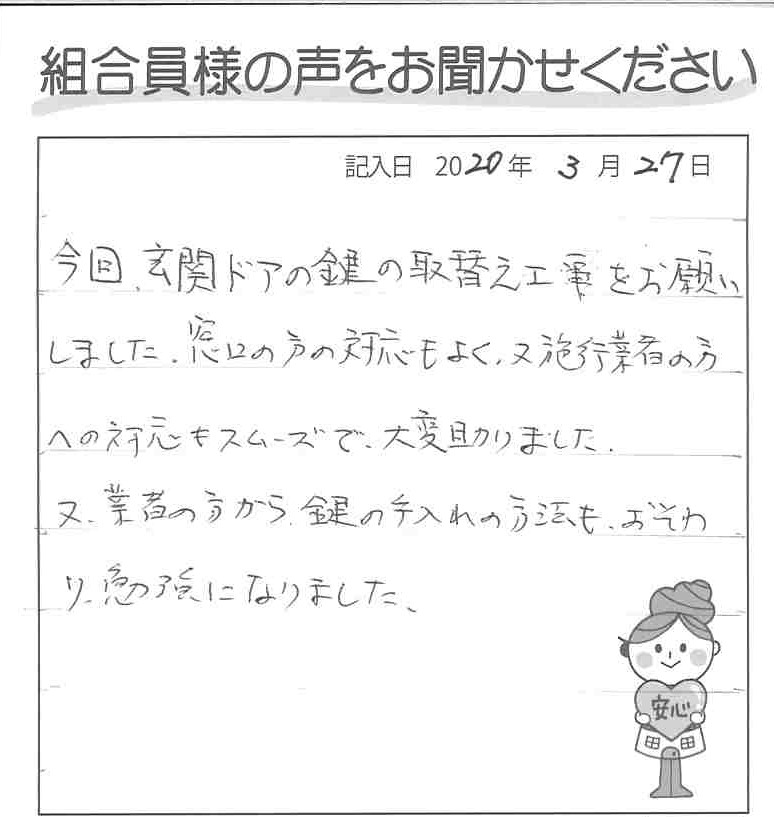 組合員様の声をお聞かせください
記入日 2020年 3月27日
今回、玄関ドアの鍵の取替え工事をお願い
しました。窓口の方の対応もよく、又施行業者の方
への対応もスムーズで、大変助りました。
又、業者の方から、鍵の手入れの方法も、おそわ
り、勉強になりました、
安心